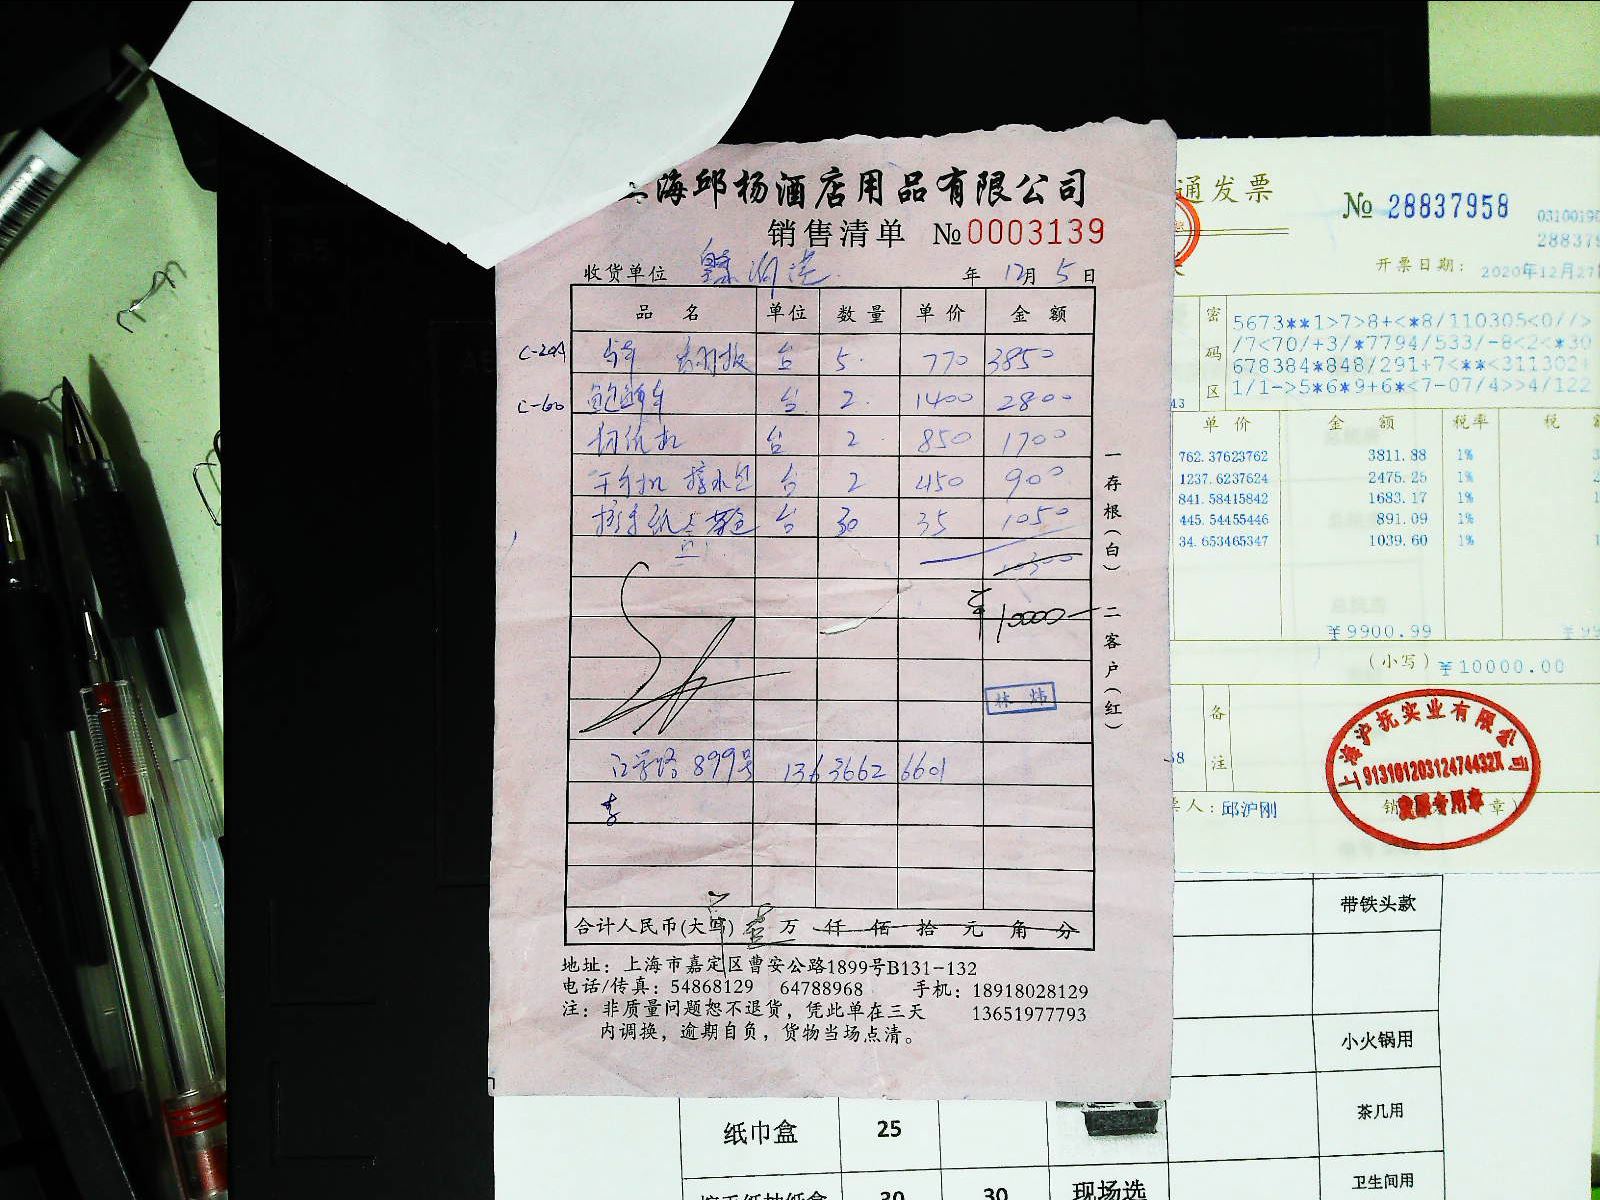 海邱杨酒店用品有限公司
销售清单 №0003139
收货单位 年 12月 5日
品名 单位 数量 单价 金额
C-20A 台 5 770 3850
C-60 台 2 1400 2800
台 2 850 1700
干手机 接水包 台 2 450 900
台 30 35 1050
10300
¥10000—
林炜
899号 13636626601
李
合计人民币(大写) 壹万仟佰拾元角分
一存根(白) 二客户(红)
地址：上海市嘉定区曹安公路1899号B131-132
电话/传真：54868129 64788968 手机：18918028129
注：非质量问题恕不退货，凭此单在三天 13651977793
内调换，逾期自负，货物当场点清。
通发票 № 28837958
开票日期：2020年12月27
密码区
5673**1>7>8+<*8/110305<0//>
/7<70/+3/*7794/533/-8<2<*30
678384*848/291+7<**<311302+
1/1->5*6*9+6*<7-07/4>>4/122
单价 金额 税率 税
762.37623762 3811.88 1%
1237.6237624 2475.25 1%
841.58415842 1683.17 1%
445.54455446 891.09 1%
34.653465347 1039.60 1%
¥9900.99
(小写) ¥10000.00
备注
上海沪抚实业有限公司
91310120312474432X
发票专用章
票人：邱沪刚 销 章)
带铁头款
小火锅用
纸巾盒 25 茶几用
30 30 现场选 卫生间用